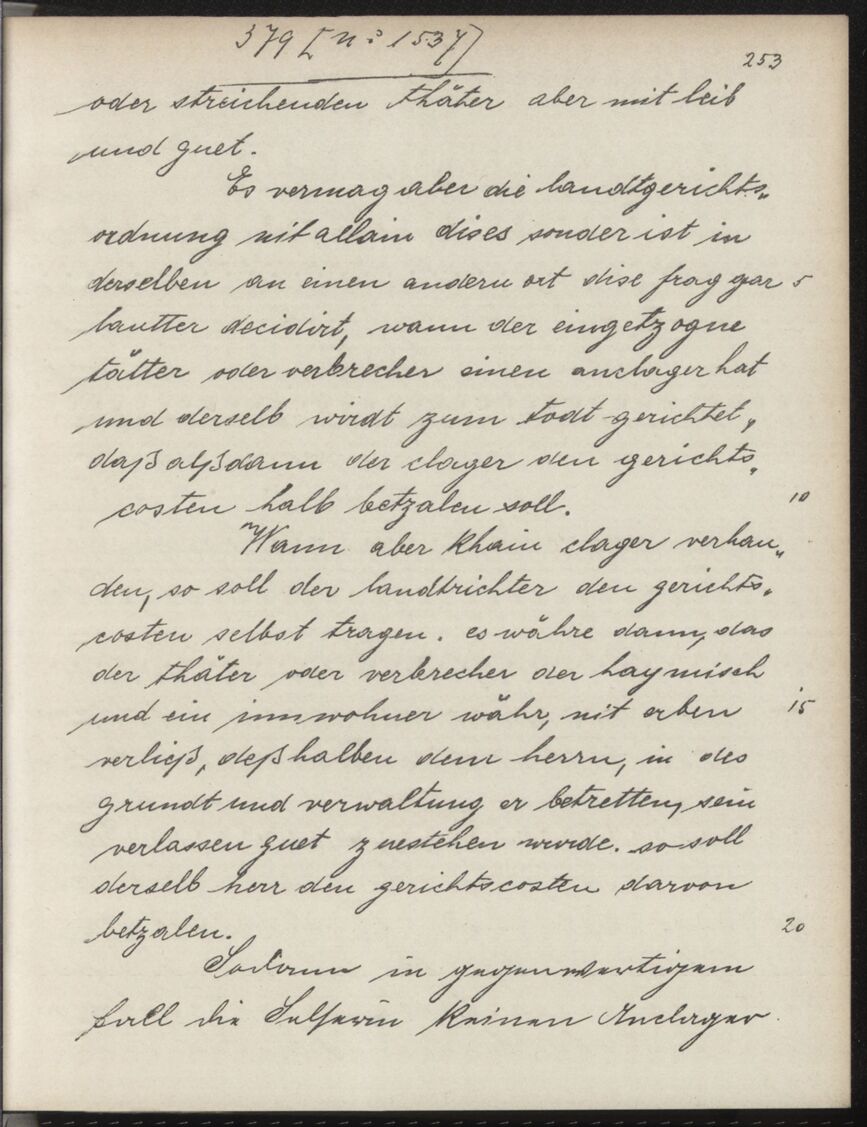 379 [nº 1537]
253
oder streichenden thäter aber mit leib
und guet.
Es vermag aber die landtgerichts„
ordnung nit allain dises sonder ist in
derselben an einen andern ort dise frag gar 5
lautter decidirt, wann der eingetzogne
tätter oder verbrecher einen anclager hat
und derselb wirdt zum todt gerichtet,
daß alßdann der clager den gerichts„
costen halb betzalen soll. 10
Wann aber khain clager verhan„
den, so soll der landtrichter den gerichts„
costen selbst tragen. es währe dann, das
der thäter oder verbrecher der haymisch
und ein innwohner währ, nit erben 15
verließ, deßhalben dem herrn, in des
grundt und verwaltung er betretten, sein
verlassen guet zuestehen wurde. so soll
derselb herr den gerichtscosten darvon
betzalen. 20
Sodann in gegenwertigem
fall die keinen Anclager